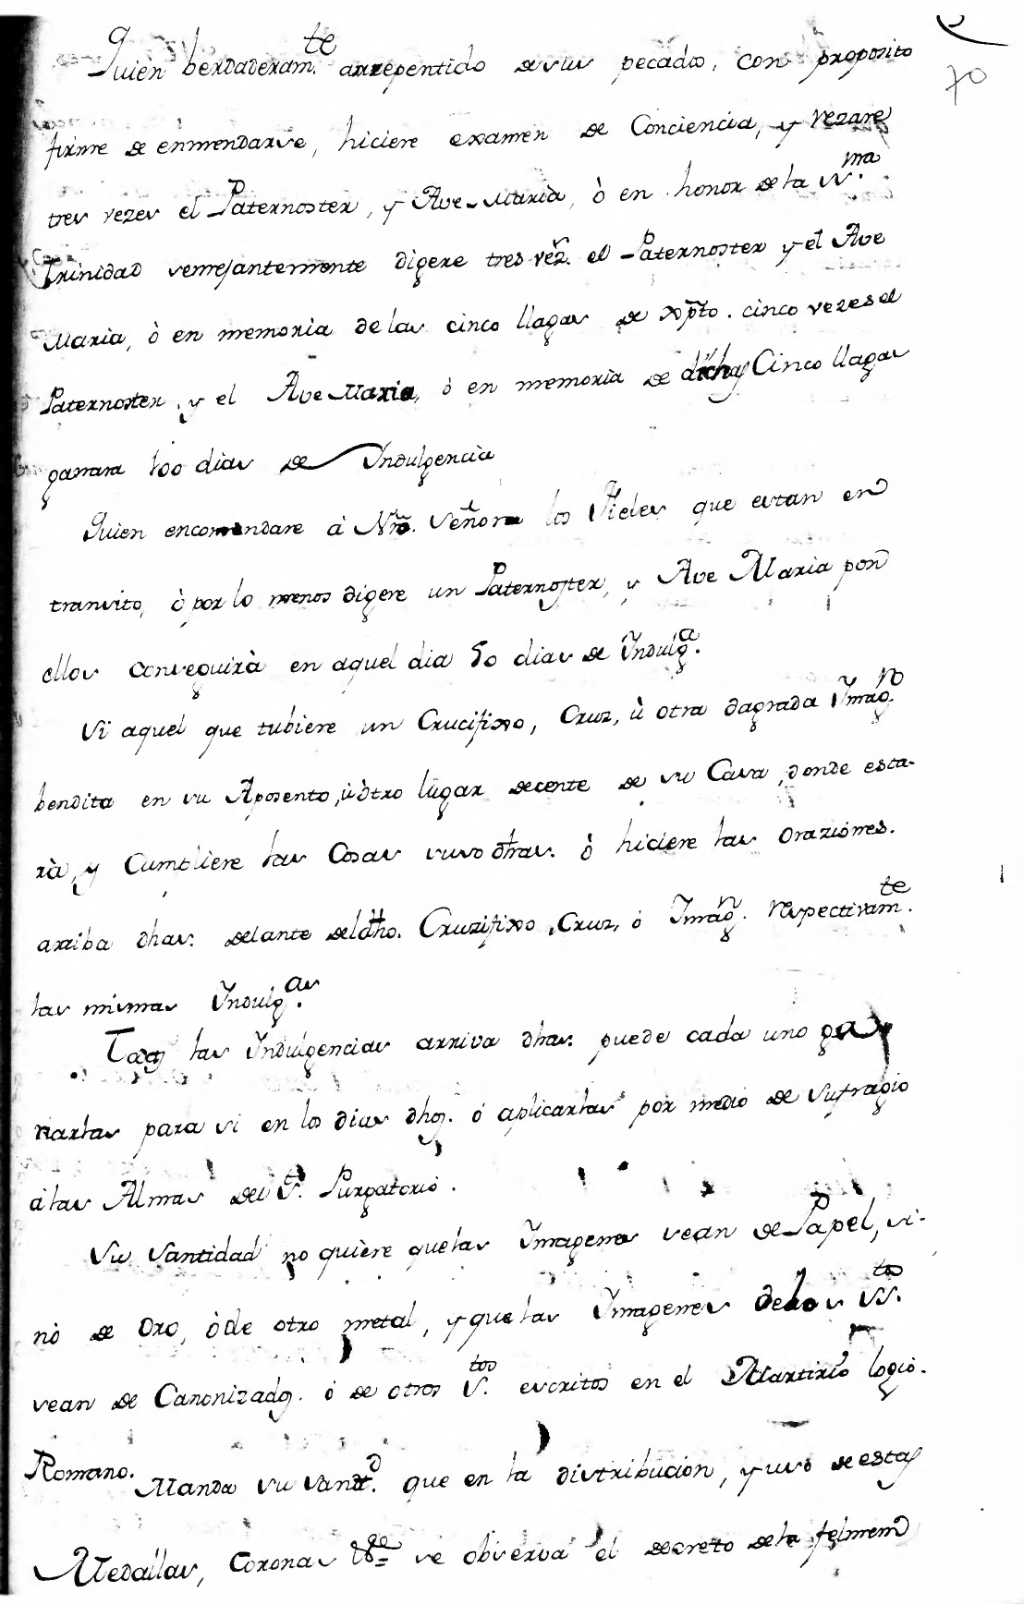 70
Quien berdaderam.te arrepentido de sus pecados, con proposito
firme de enmendarse, hiciere examen de Conciencia, y rezare
tres vezes el Paternoster, y Ave Maria, ò en honor de la SS.ma
Trinidad semejantemente digere tres vez.s el Paternoster y el Ave
Maria, ò en memoria de las cinco llagas de Xpto. cinco vezes el
Paternoster, y el Ave Maria, ò en memoria de dichas Cinco llagas
ganara 100 dias de Indulgencia
Quien encomendare à Nro. Señor los Fieles que estan en
transito, ò por lo menos digere un Paternoster, y Ave Maria por
ellos conseguirà en aquel dia 50 dias de Indulg.a
Si aquel que tubiere un Crucifixo, Cruz, ù otra sagrada Imag.n
bendita en su Aposento, ù otro lugar decente de su Casa, donde esta-
rà, y Cumpliere las Cosas suso dhas. ò hiciere las oraziones.
arriba dhas: delante del dho. Cruzifixo, Cruz, ò Imag.n respectivam.te
las mismas Indulg.as
Todas las Indulgencias arriva dhas: puede cada uno ga
narlas para si en los dias dhos. ò aplicarlas por medio de sufragio
à las Almas del S.to Purgatorio.
Su Santidad no quiere que las Imagenes sean de Papel, si-
nò de Oro, ò de otro metal, y que las Imagenes de los SS.tos
sean de Canonizados. ò de otros S.tos escritos en el Martirio logio.
Romano. Manda su Santd. que en la distribucion, y uso de estas
Medallas, Coronas &c.= se observa el decreto de la felmem